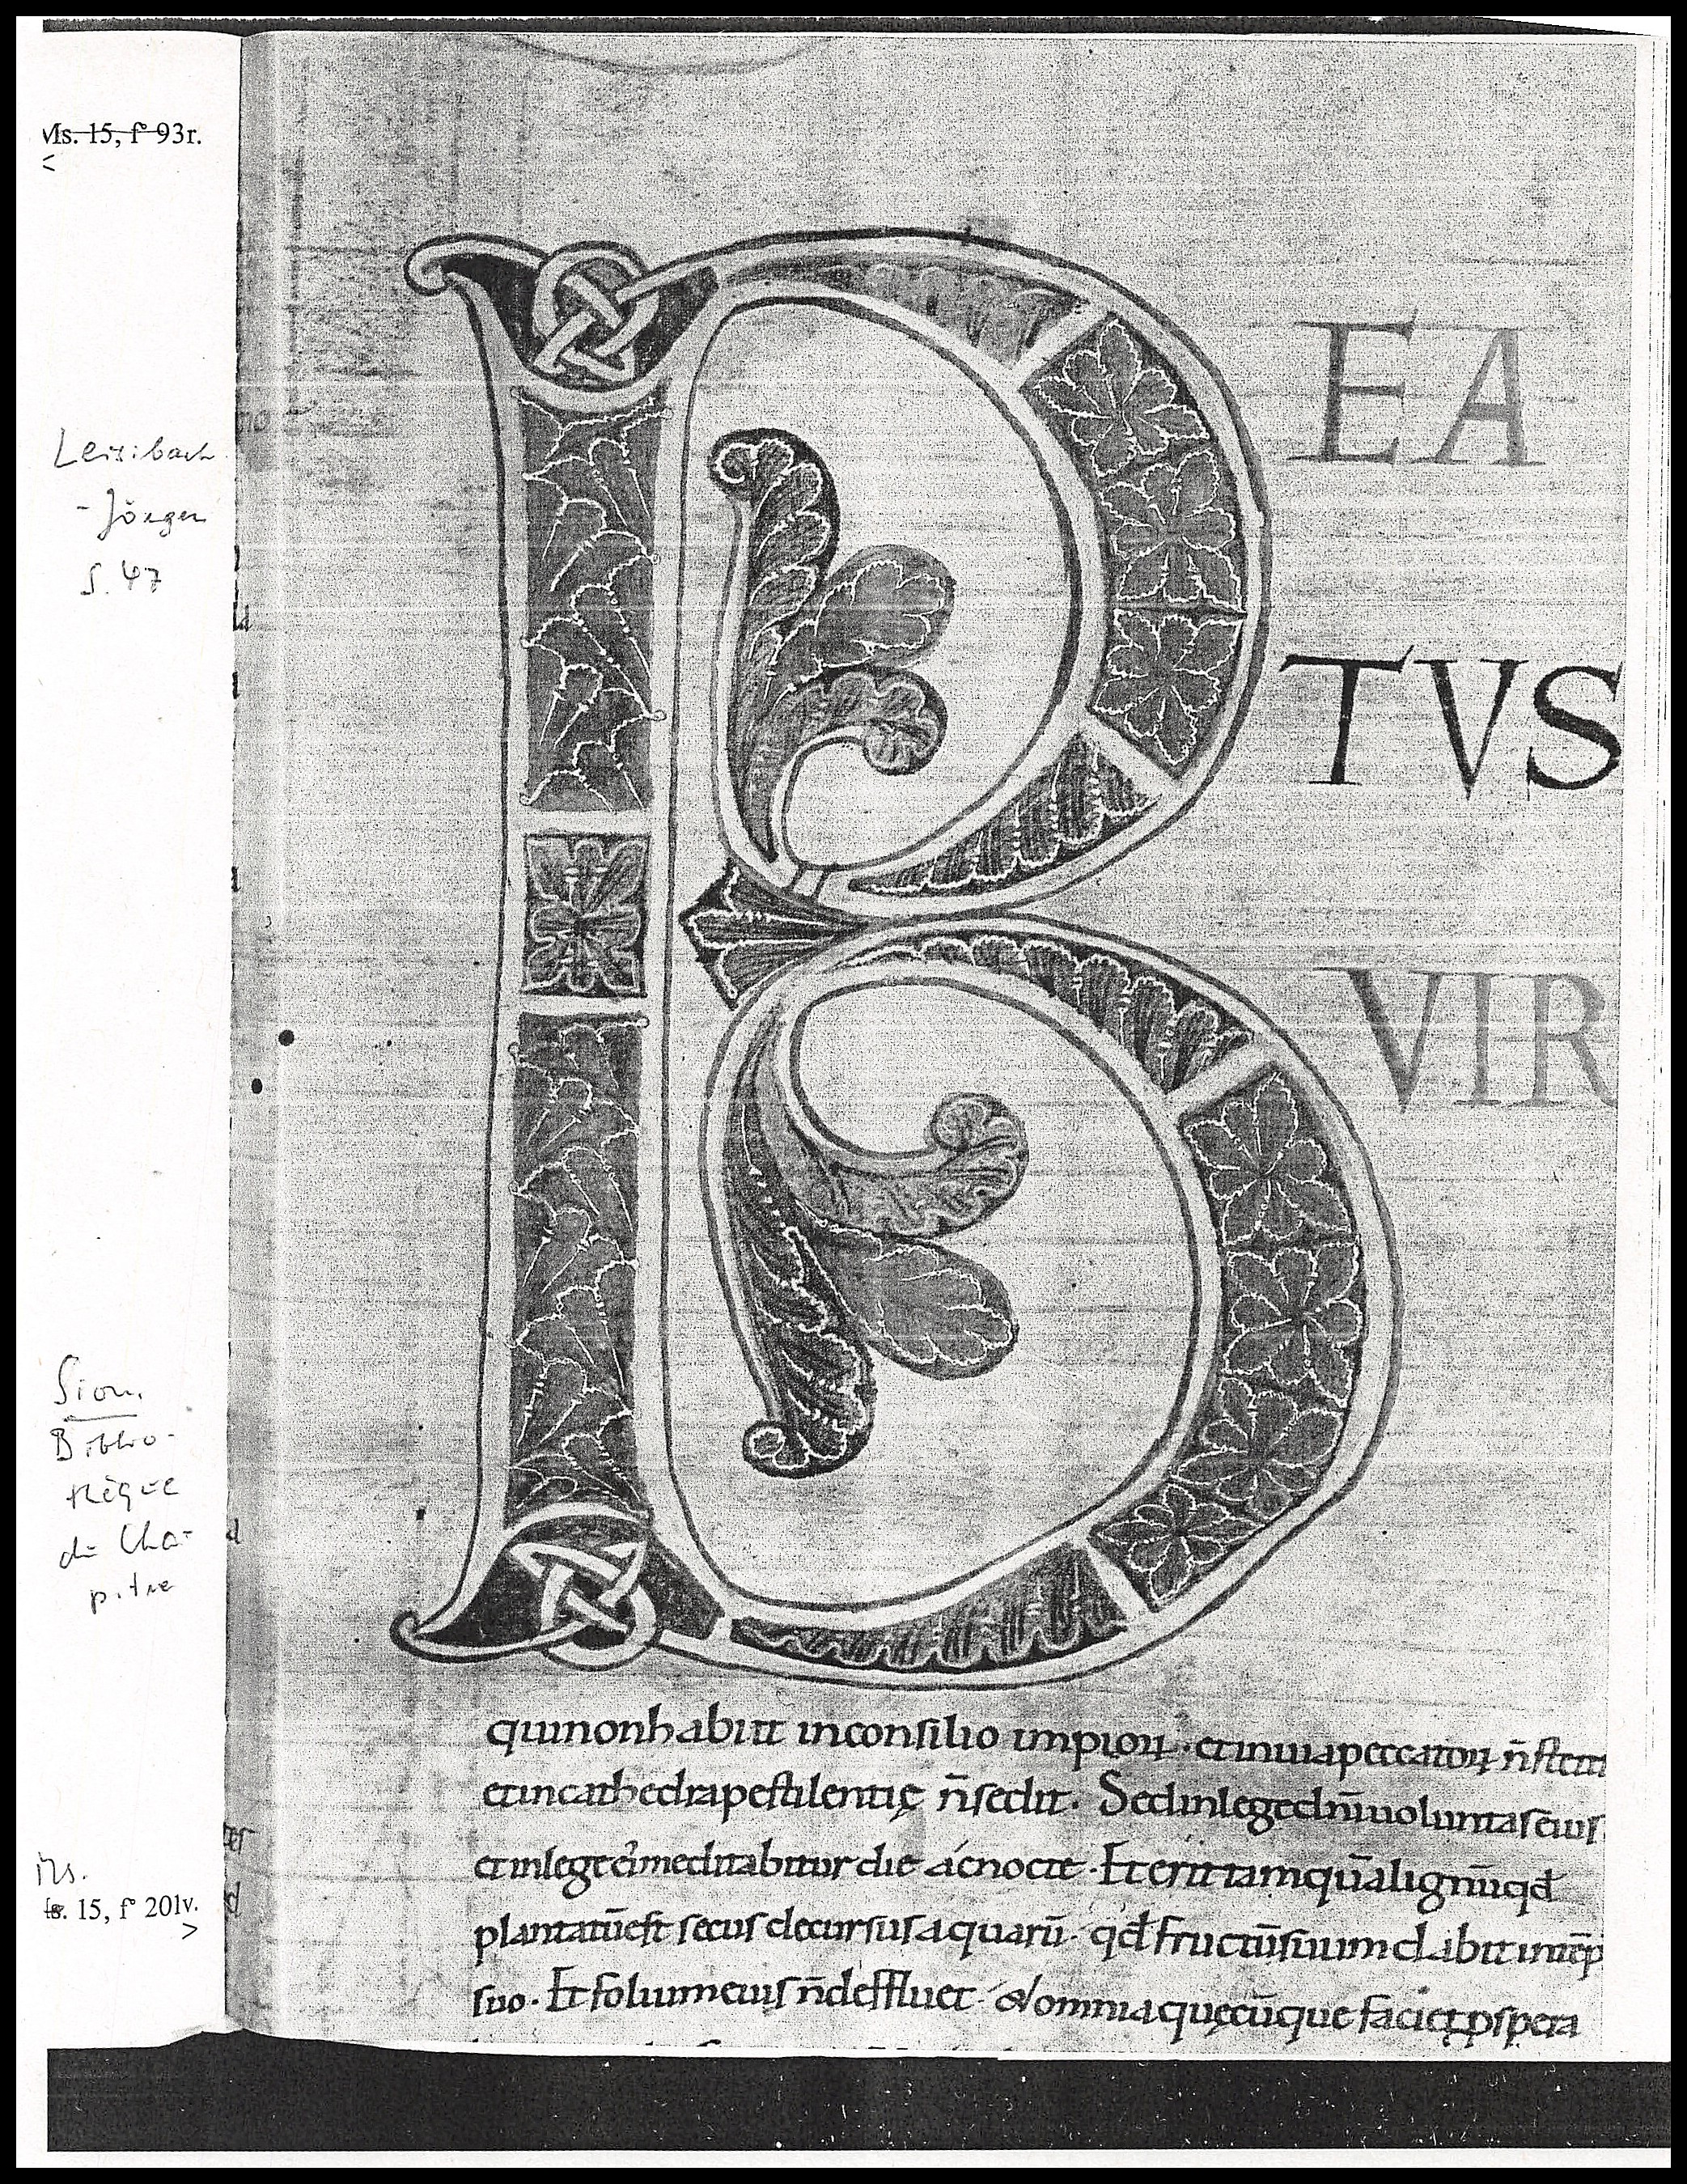 Ms. 15, fº 93r.
<
Leisibach
- Jörger
S. 47
Sion,
Biblio-
thèque
du Cha-
pitre
Ms.
15, fº 201v.
>
B
EA
TVS
VIR
quinonhabiit inconsilio impioꝝ · etinuiapeccatoꝝ n̄stetit
etincathedrapestilentię n̄sedit. Sedinlegedn̄iuoluntasei᷒
etinlegeei᷒meditabiturdie ácnocte · Eterittamquālignūqd̄
plantatūest secus decursusaquarū · qd̄fructūsuumdabitintēp
suo. Etfoliumeius n̄deffluet · &omniaquęcūque faciet ꝓspera